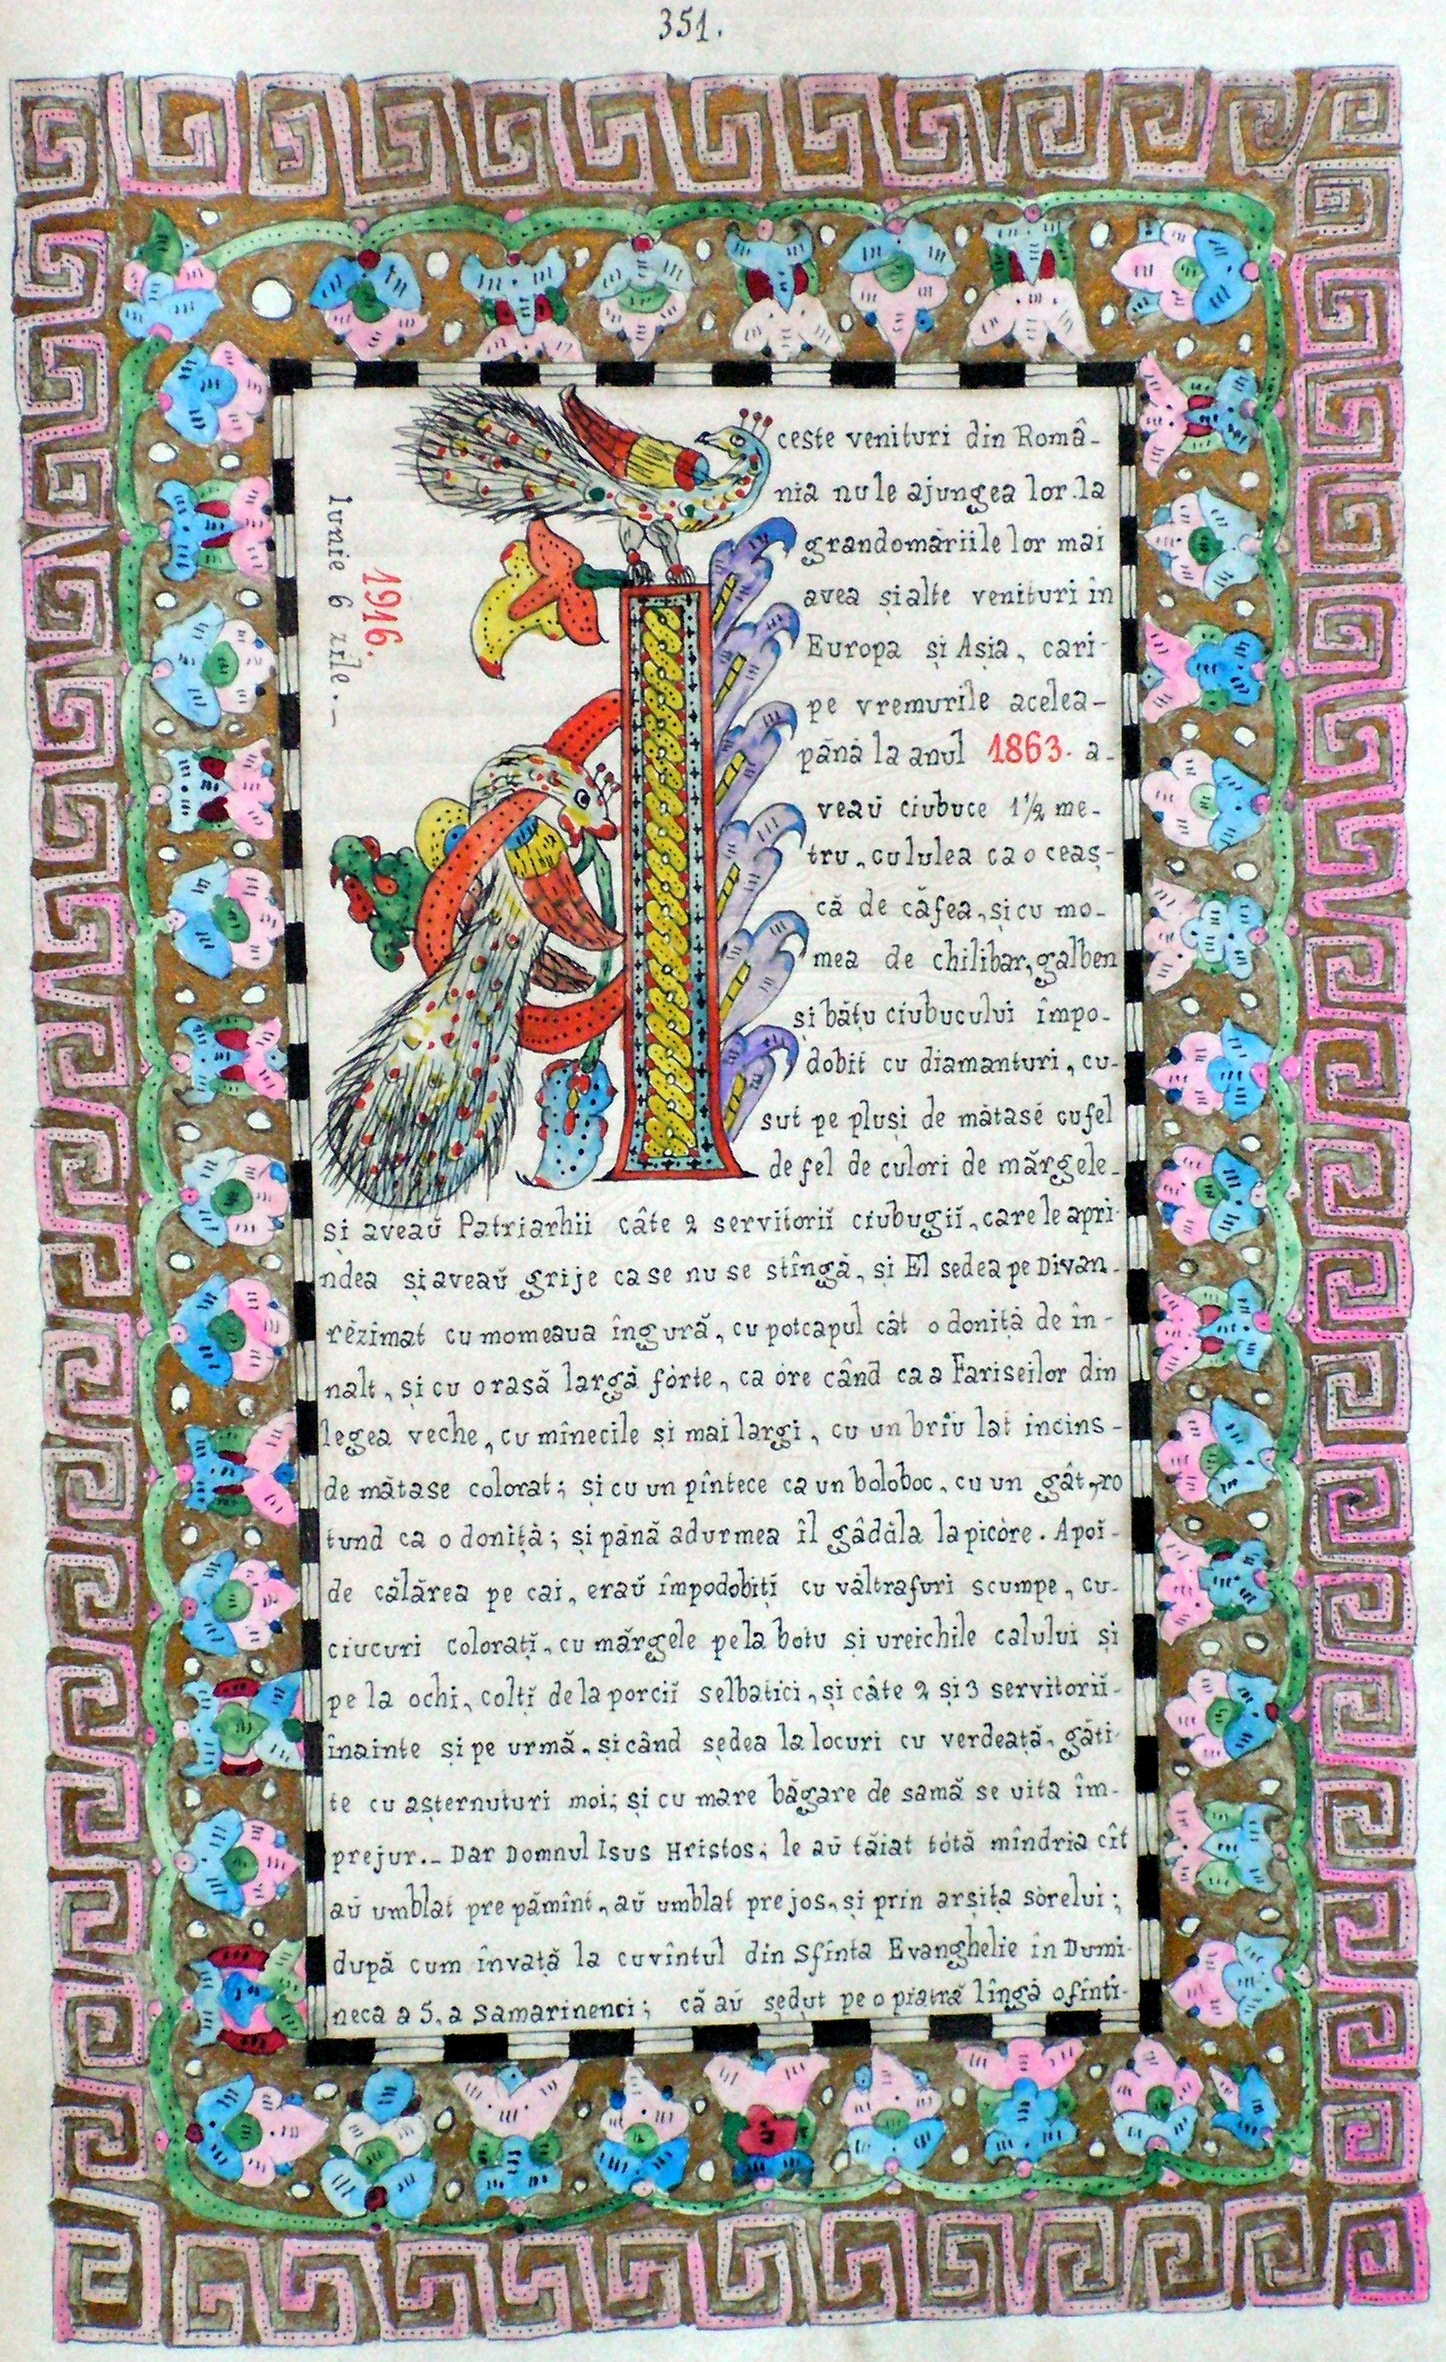 351.
Iunie 6 zile.—
1916.
Aceste venituri din Româ-
nia nu le ajungea lor. la
grandomăriile lor mai
avea și alte venituri în
Europa și Asia, cari
pe vremurile acelea-
până la anul 1863. a-
veaŭ ciubuce 1½ me-
tru, cu lulea ca o ceaș-
că de căfea, și cu mo-
mea de chilibar, galben
și bățu ciubucului împo-
dobit cu diamanturi, cu-
sut pe pluși de mătasĕ cu fel
de fel de culori de mărgele-
și aveaŭ Patriarhii câte 2 servitorĭĭ ciubugiĭ, care le apri-
ndea și aveaŭ grije ca se nu se stîngă, și El ședea pe Divan-
rĕzimat cu momeaua în gură, cu potcapul cât o doniță de în-
nalt, și cu o rasă largă fórte, ca óre când ca a Fariseilor din
legea veche, cu mînecile și mai largi, cu un brîu lat incins-
de mătase colorat; și cu un pîntece ca un boloboc, cu un gât, ro
tund ca o doniță; și până adurmea îl gâdăla la picóre. Apoĭ-
de călărea pe cai, eraŭ împodobițĭ cu văltrafuri scumpe, cu-
ciucuri colorațĭ, cu mărgele pe la botu și ureichile calului și
pe la ochi, colțĭ de la porciĭ selbatici, și câte 2 și 3 servitoriĭ-
înainte și pe urmă, și când ședea la locuri cu verdeață, găti-
te cu așternuturi moi; și cu mare băgare de samă se uita îm-
prejur.— Dar Domnul Isus Hristos, le aŭ tăiat tótă mîndria cît
aŭ umblat pre pămînt, aŭ umblat pre jos, și prin arșița sórelui;
după cum învață la cuvîntul din Sfinta Evanghelie în Dumi-
neca a 5. a Samarinenci; că aŭ ședut pe o piatră lîngă o fînti-